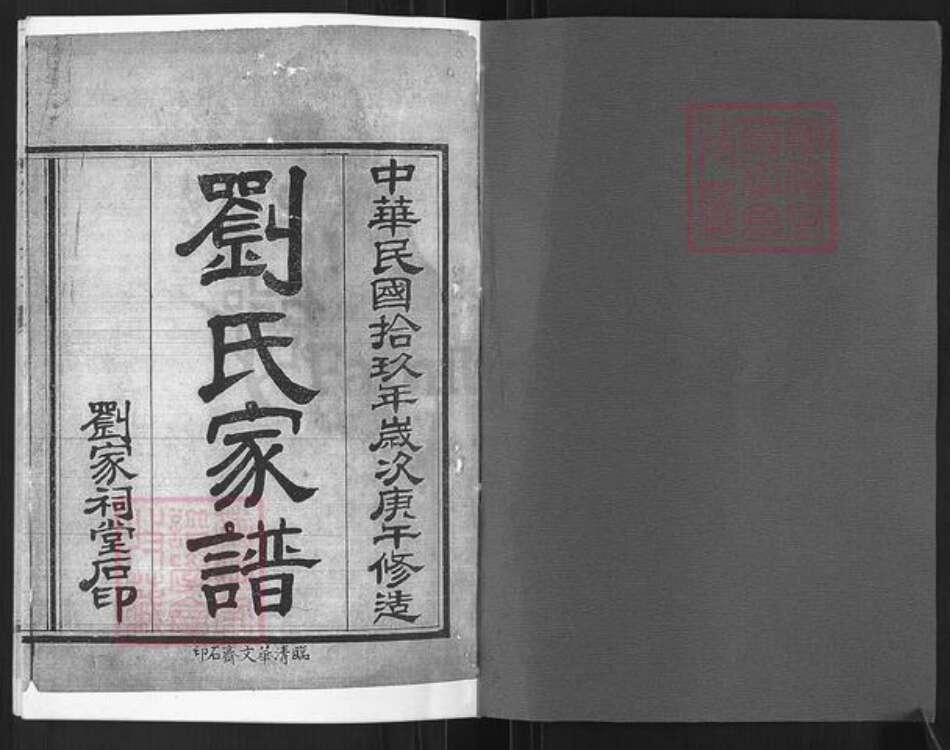 中華民國拾玖年歲次庚午修造
劉氏家譜
劉家祠堂石印
臨清華文齋石印